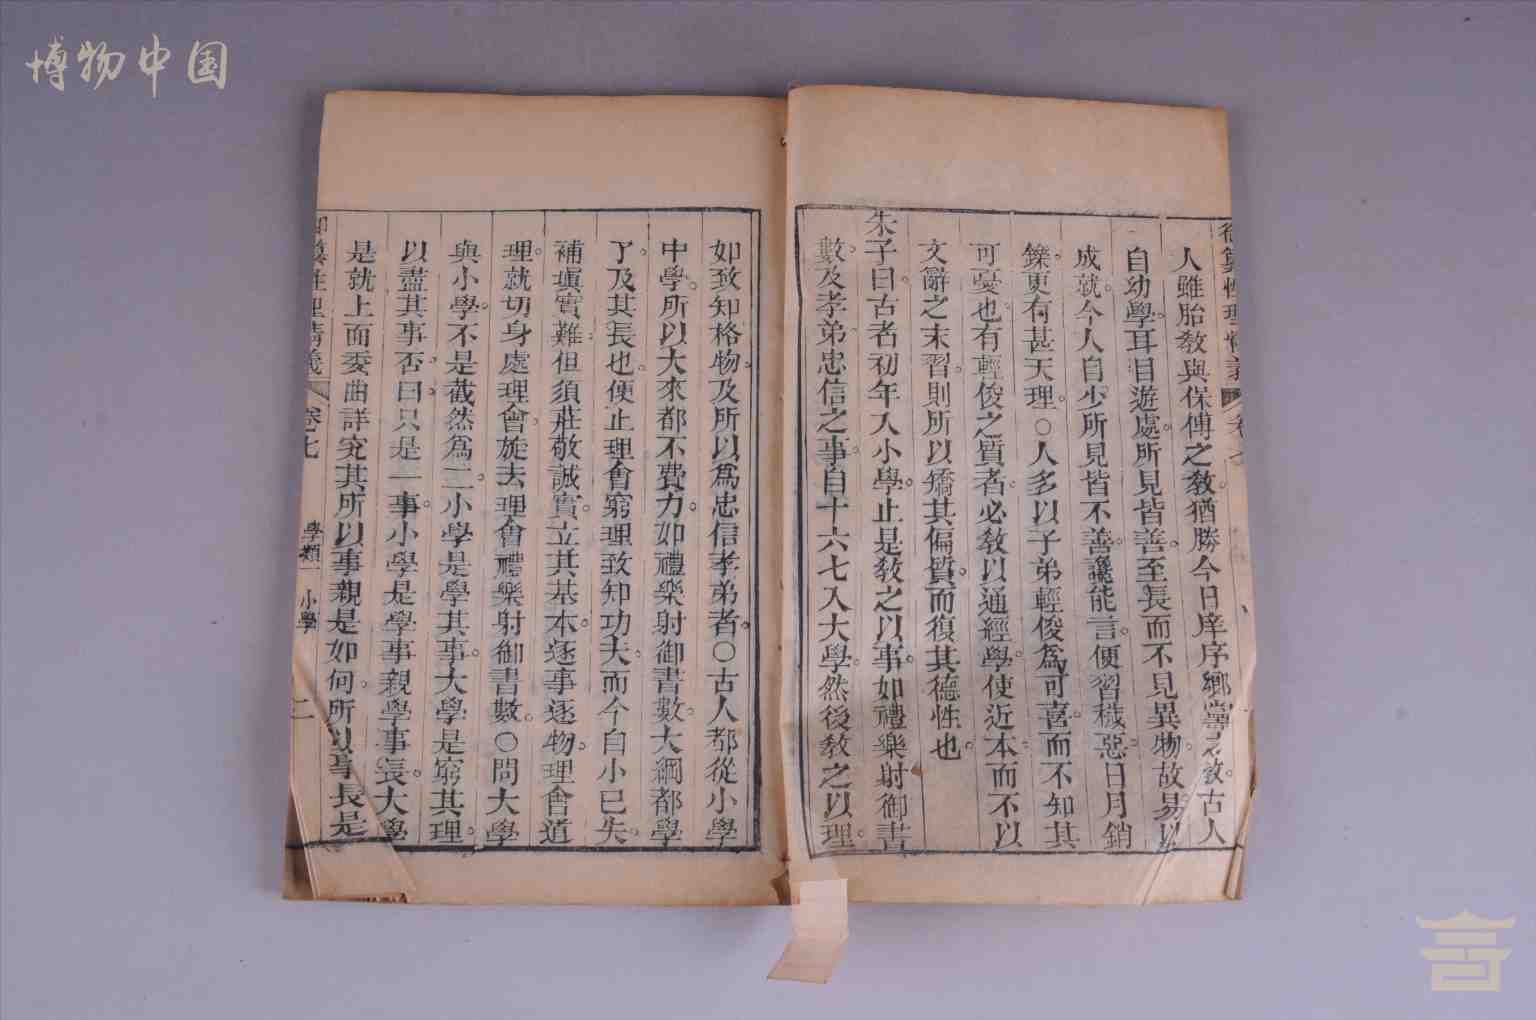 博物中国
御纂性理精義 卷七
人雖胎教與保傅之教。猶勝今日庠序鄉黨之教。古人
自幼學。耳目遊處。所見皆善。至長而不見異物。故易以
成就。今人自少所見皆不善。讒能言。便習穢惡。日月銷
鑠。更有甚天理。○人多以子弟輕俊爲可喜。而不知其
可憂也。有輕俊之質者。必教以通經學。使近本。而不以
文辭之末習。則所以矯其偏質。而復其德性也。
朱子曰。古者初年入小學。止是教之以事。如禮樂射御書
數。及孝弟忠信之事。自十六七入大學。然後教之以理。
如致知格物。及所以爲忠信孝弟者。○古人都從小學
中學。所以大來都不費力。如禮樂射御書數。大綱都學
了。及其長也。便止理會窮理致知功夫。而今自小已失。
補塡實難。但須莊敬誠實。立其基本。逐事逐物。理會道
理。就切身處理會。旋去理會禮樂射御書數。○問大學
與小學。不是截然爲二。小學是學其事。大學是窮其理。
以盡其事否。曰。只是一事。小學是學事親學事長。大學
是就上面委曲詳究其所以事親是如何。所以事長是
御纂性理精義 卷七 學類一 小學 二